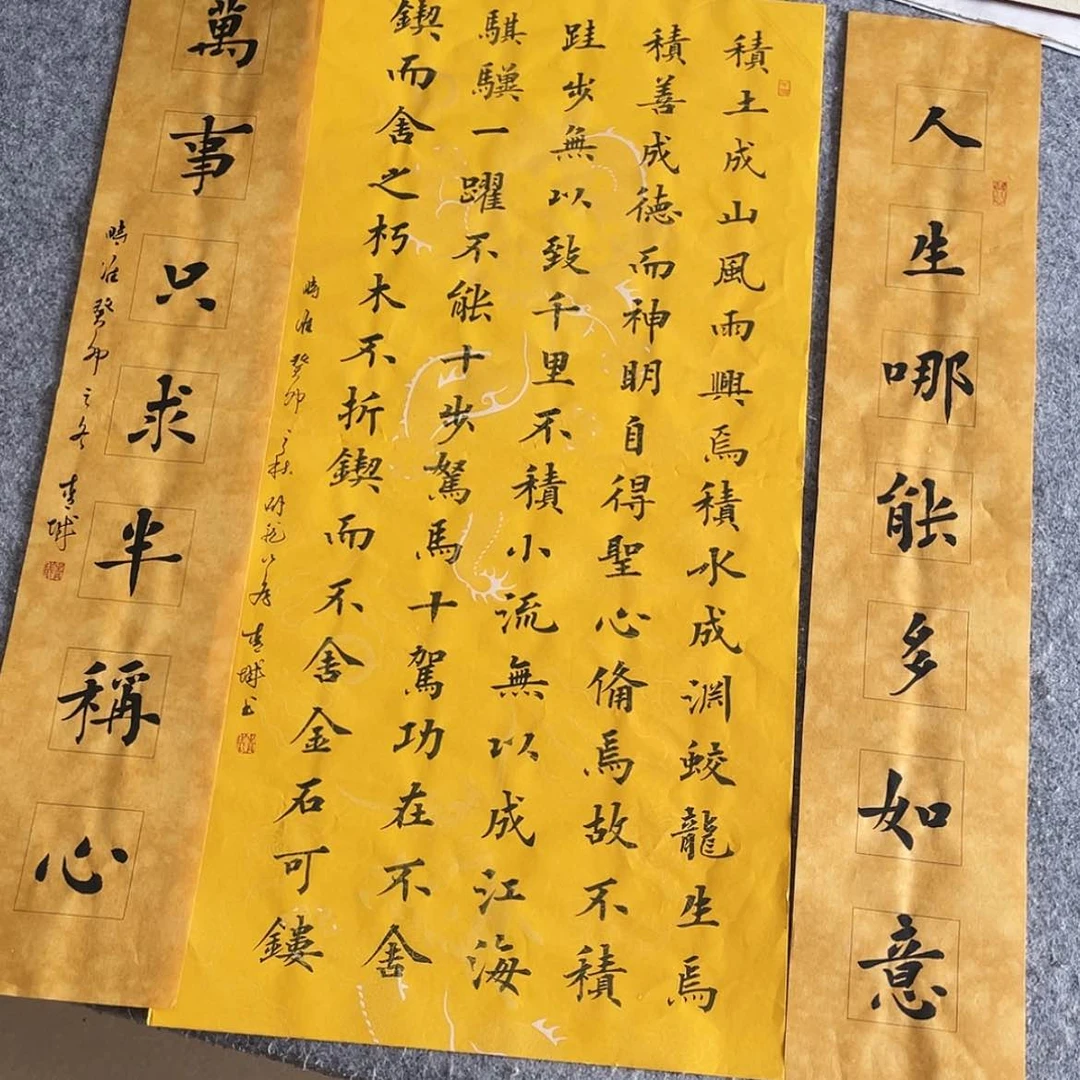 人生哪能多如意
積土成山風雨興焉積水成淵蛟龍生焉
積善成德而神明自得聖心備焉故不積
跬步無以致千里不積小流無以成江海
騏驥一躍不能十步駑馬十駕功在不舍
鍥而舍之朽木不折鍥而不舍金石可鏤
時 癸卯之秋 青城书
萬事只求半稱心
時 癸卯之冬 青城